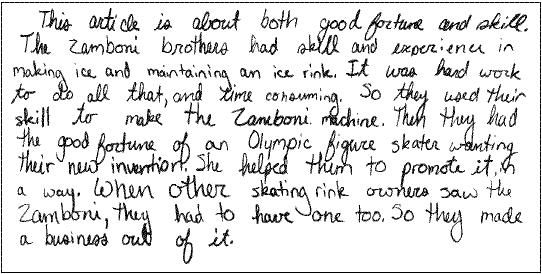 This article is about both good fortune and skill.
The Zamboni brothers had skill and experience in
making ice and maintaining an ice rink. It was hard work
to do all that, and time consuming. So they used their
skill to make the Zamboni machine. Then they had
the good fortune of an Olympic figure skater wanting
their new invention. She helped them to promote it, in
a way. When other skating rink owners saw the
Zamboni, they had to have one too. So they made
a business out of it.